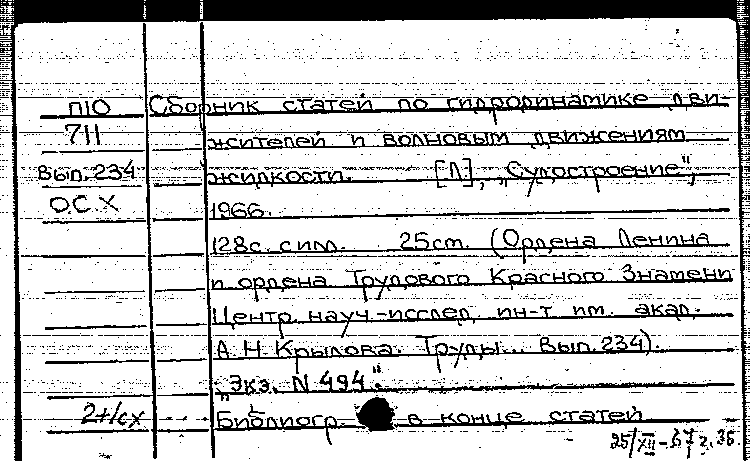 П10 Сборник статей по гидродинамике дви-
711 жителей и волновым движениям
Вып. 234 жидкости. [Л], „Судостроение",
О.С.Х 1966.
128с. с илл. 25см. (Ордена Ленина
и ордена Трудового Красного Знамени
Центр. науч.-исслед. ин-т им. акад.
А. Н. Крылова. Труды... Вып. 234).
„Экз. N 494".
2+1сх Библиогр. в конце статей
25/XII-67г.